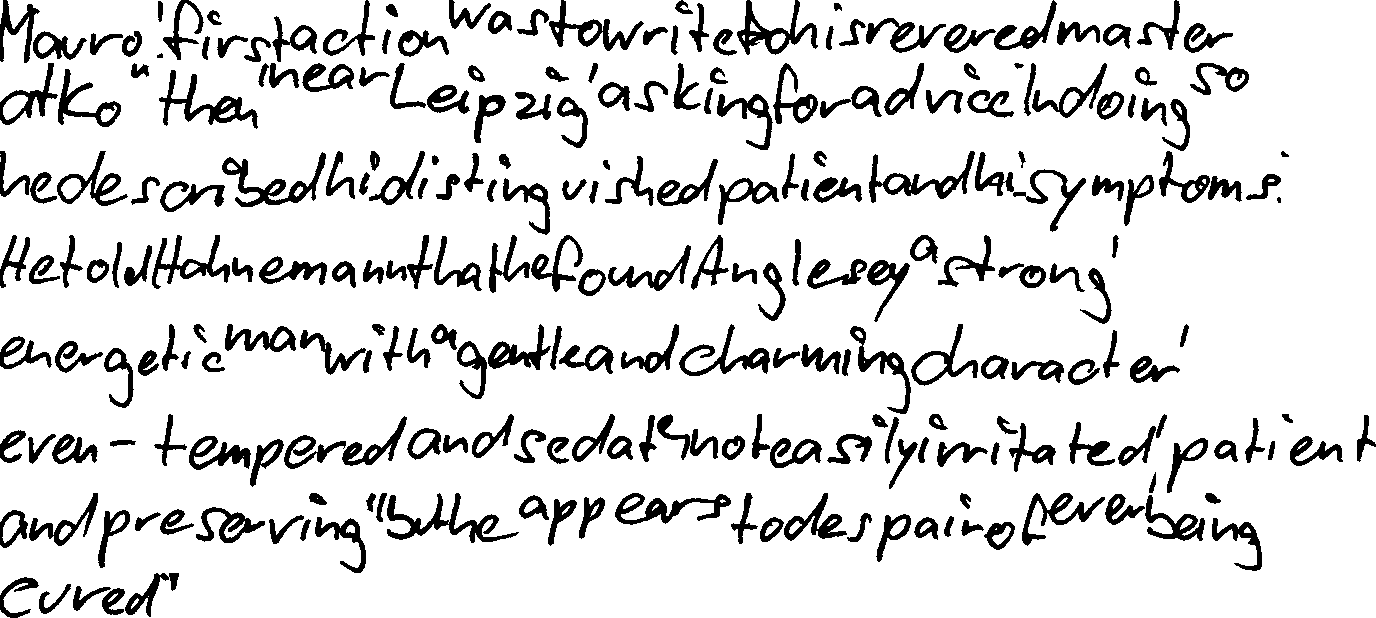 Mauro's first action was to write to his revered master
at Ko"then "near Leipzig' asking for advice In doing so
he described his distinguished patient and his symptoms.
He told Hahnemann that he found Anglesey a strong'
energetic man with a gentle and charming character'
even-tempered and sedate, not easily irritated' patient
and preserving "but he appears to despair of ever being
cured"